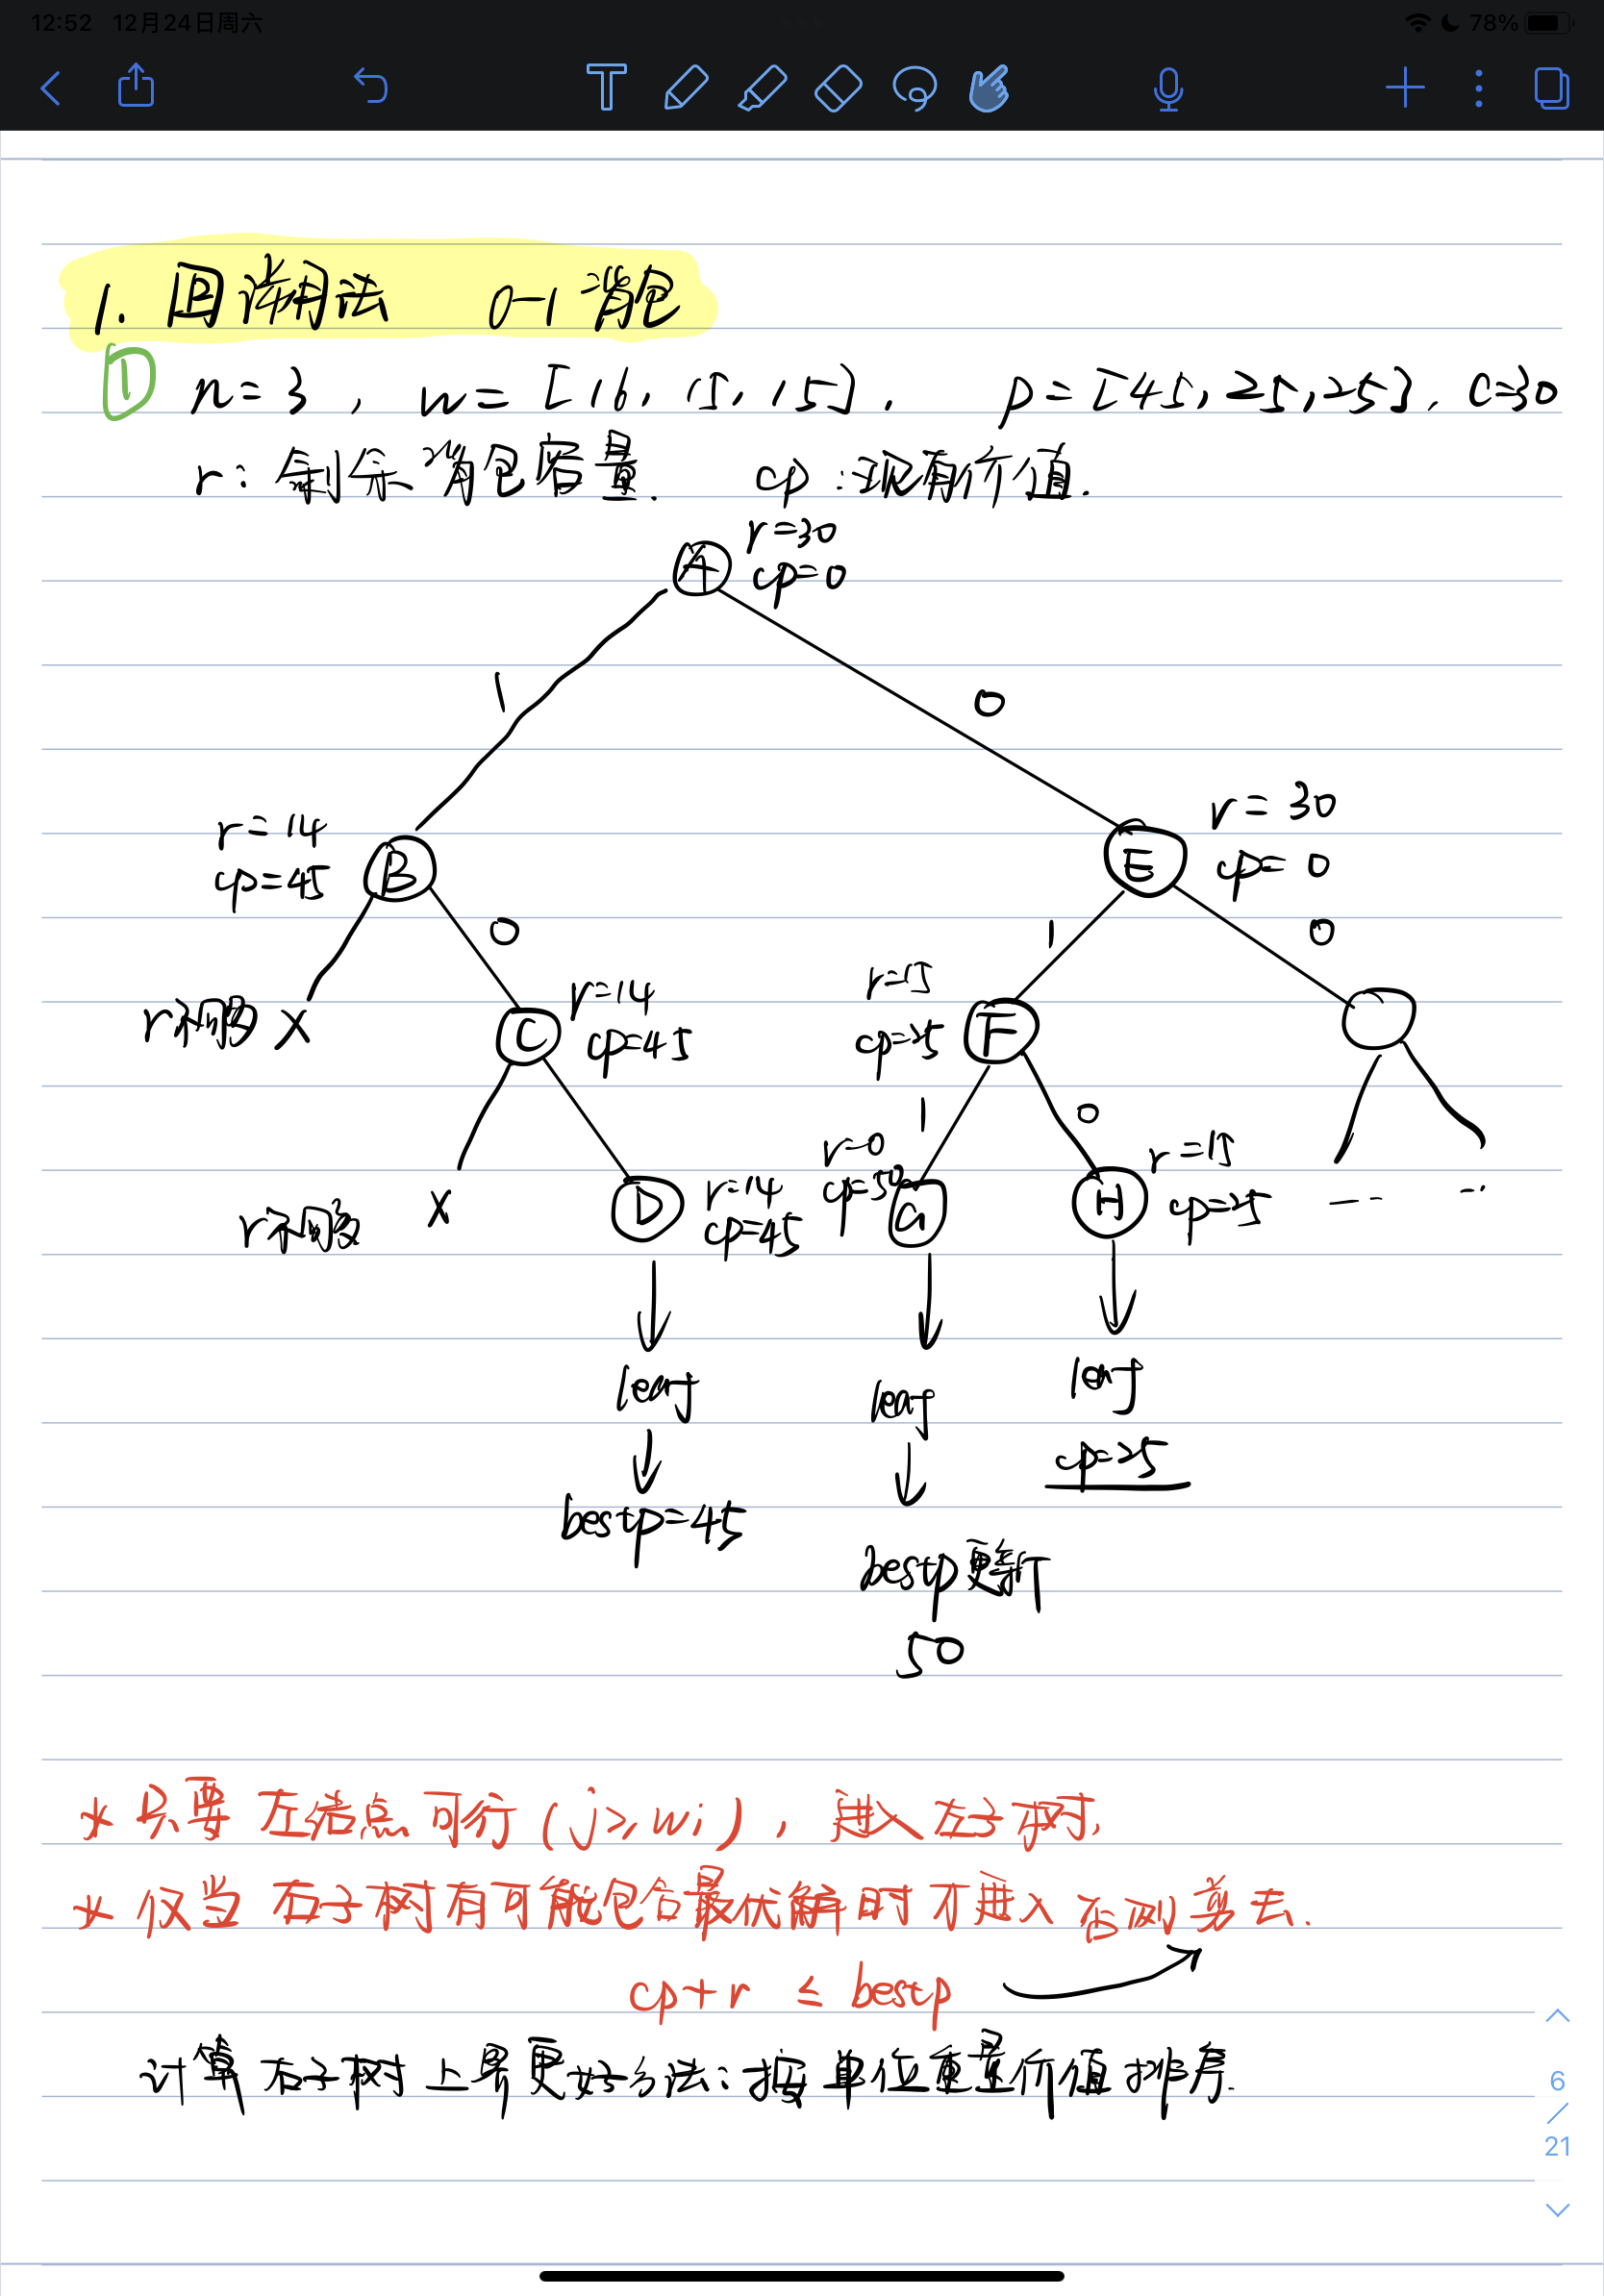 12:52 12月24日周六 78%
1. 回溯法 0-1 背包
① n=3, w=[16, 15, 15], p=[45, 25, 25], c=30
r: 剩余背包容量. cp:现有价值.
r=30
A cp=0
1 0
r=14 r=30
cp=45 B E cp=0
0 1 0
r不够 X C r=14 cp=45 r=15 cp=25 F
1 0
r不够 X D r=14 cp=45 r=0 cp=50 G H r=15 cp=25 ... ...
leaf leaf leaf
cp=25
bestp=45
bestp更新
50
* 只要左结点可行(j≥wi), 进入左子树,
* 仅当右子树有可能包含最优解时才进入 否则剪去.
cp+r ≤ bestp
计算右子树上界更好方法:按单位重量价值排序.
6
/
21